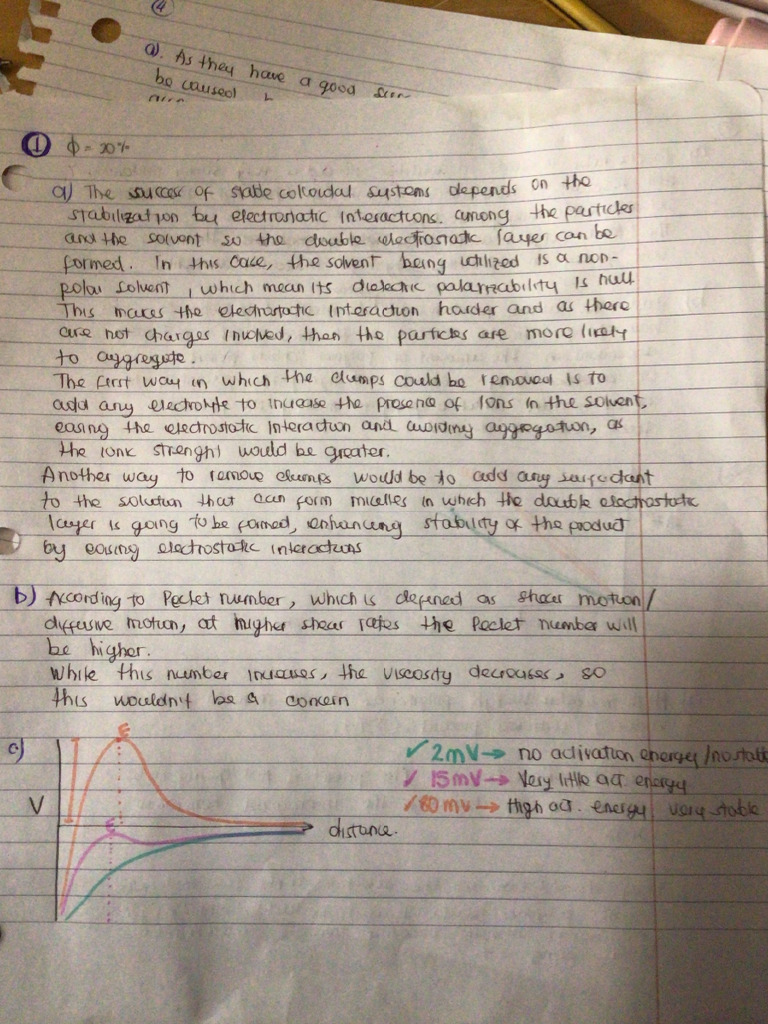 ④
a). As they have a good
be caused
① ϕ = 20%
a) The success of stable colloidal systems depends on the
stabilization by electrostatic interactions. among the particles
and the solvent so the double electrostatic layer can be
formed. In this case, the solvent being utilized is a non-
polar solvent, which mean its dielectric palarizability is null
This makes the electrostatic interaction harder and as there
are not charges involved, then the particles are more likely
to aggregate.
The first way in which the clumps could be removed is to
add any electrolyte to increase the presence of ions in the solvent,
easing the electrostatic interaction and avoiding aggregation, as
the ionic strenght would be greater.
Another way to remove clumps would be to add any surfactant
to the solution that can form micelles in which the double electrostatic
layer is going to be formed, enhancing stability of the product
by easing electrostatic interactions
b) According to Peclet number, which is defined as shear motion/
diffusive motion, at higher shear rates the Peclet number will
be higher.
While this number increases, the viscosity decreases, so
this wouldn't be a concern
c) E ✓ 2mV → no activation energy / no stab
✓ 15mV → Very little act. energy
V ✓ 80 mV → High act. energy very stable
E distance.